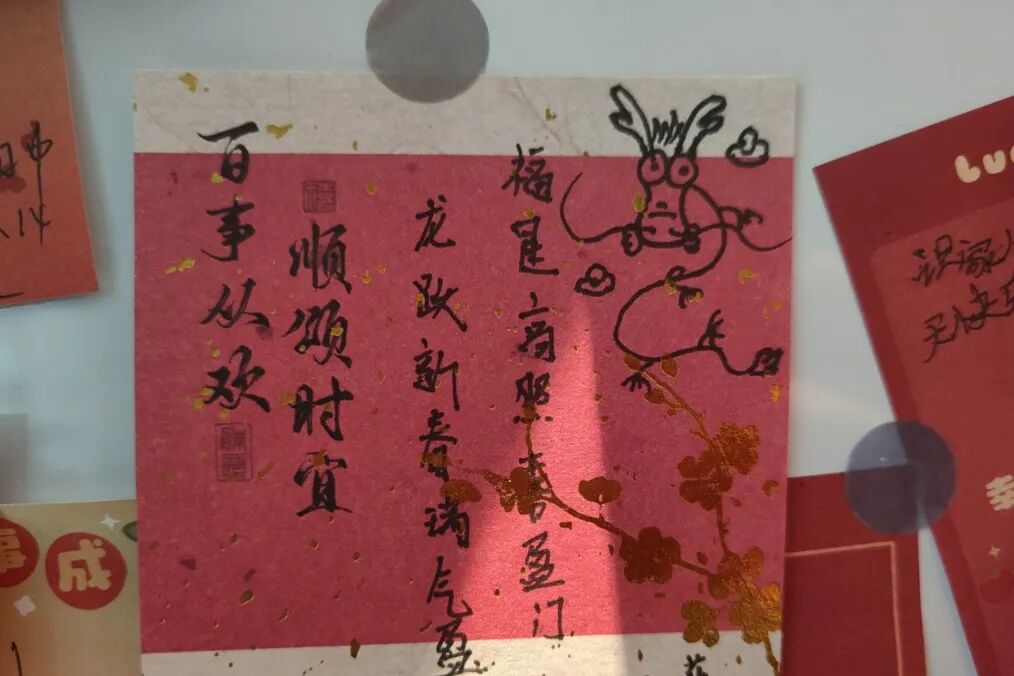 福星高照喜盈门
龙跃新春瑞气盈
顺颂时宜
百事从欢
事成
幸